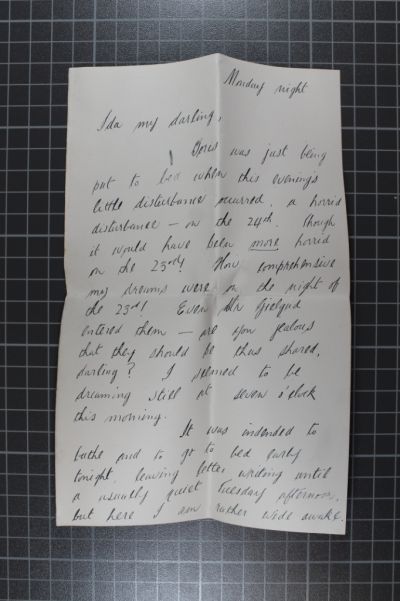 Monday night
Ida my darling,
Doris was just being
put to bed when this evening's
little disturbance occurred, a horrid
disturbance – on the 24th. though
it would have been more horrid
on the 23rd! How comprehensive
my dreams were on the night of
the 23rd! Even Mr Gielgud
entered them – are you jealous
that they should be thus shared,
darling? I seemed to be
dreaming still at seven o'clock
this morning.
It was intended to
bathe and to go to bed early
tonight, leaving letter writing until
a usually quiet Tuesday afternoon,
but here I am rather wide awake.